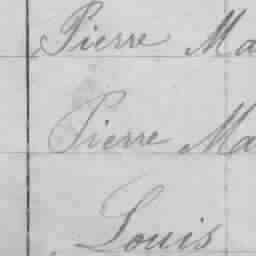 Pierre Ma
Pierre Ma
Louis